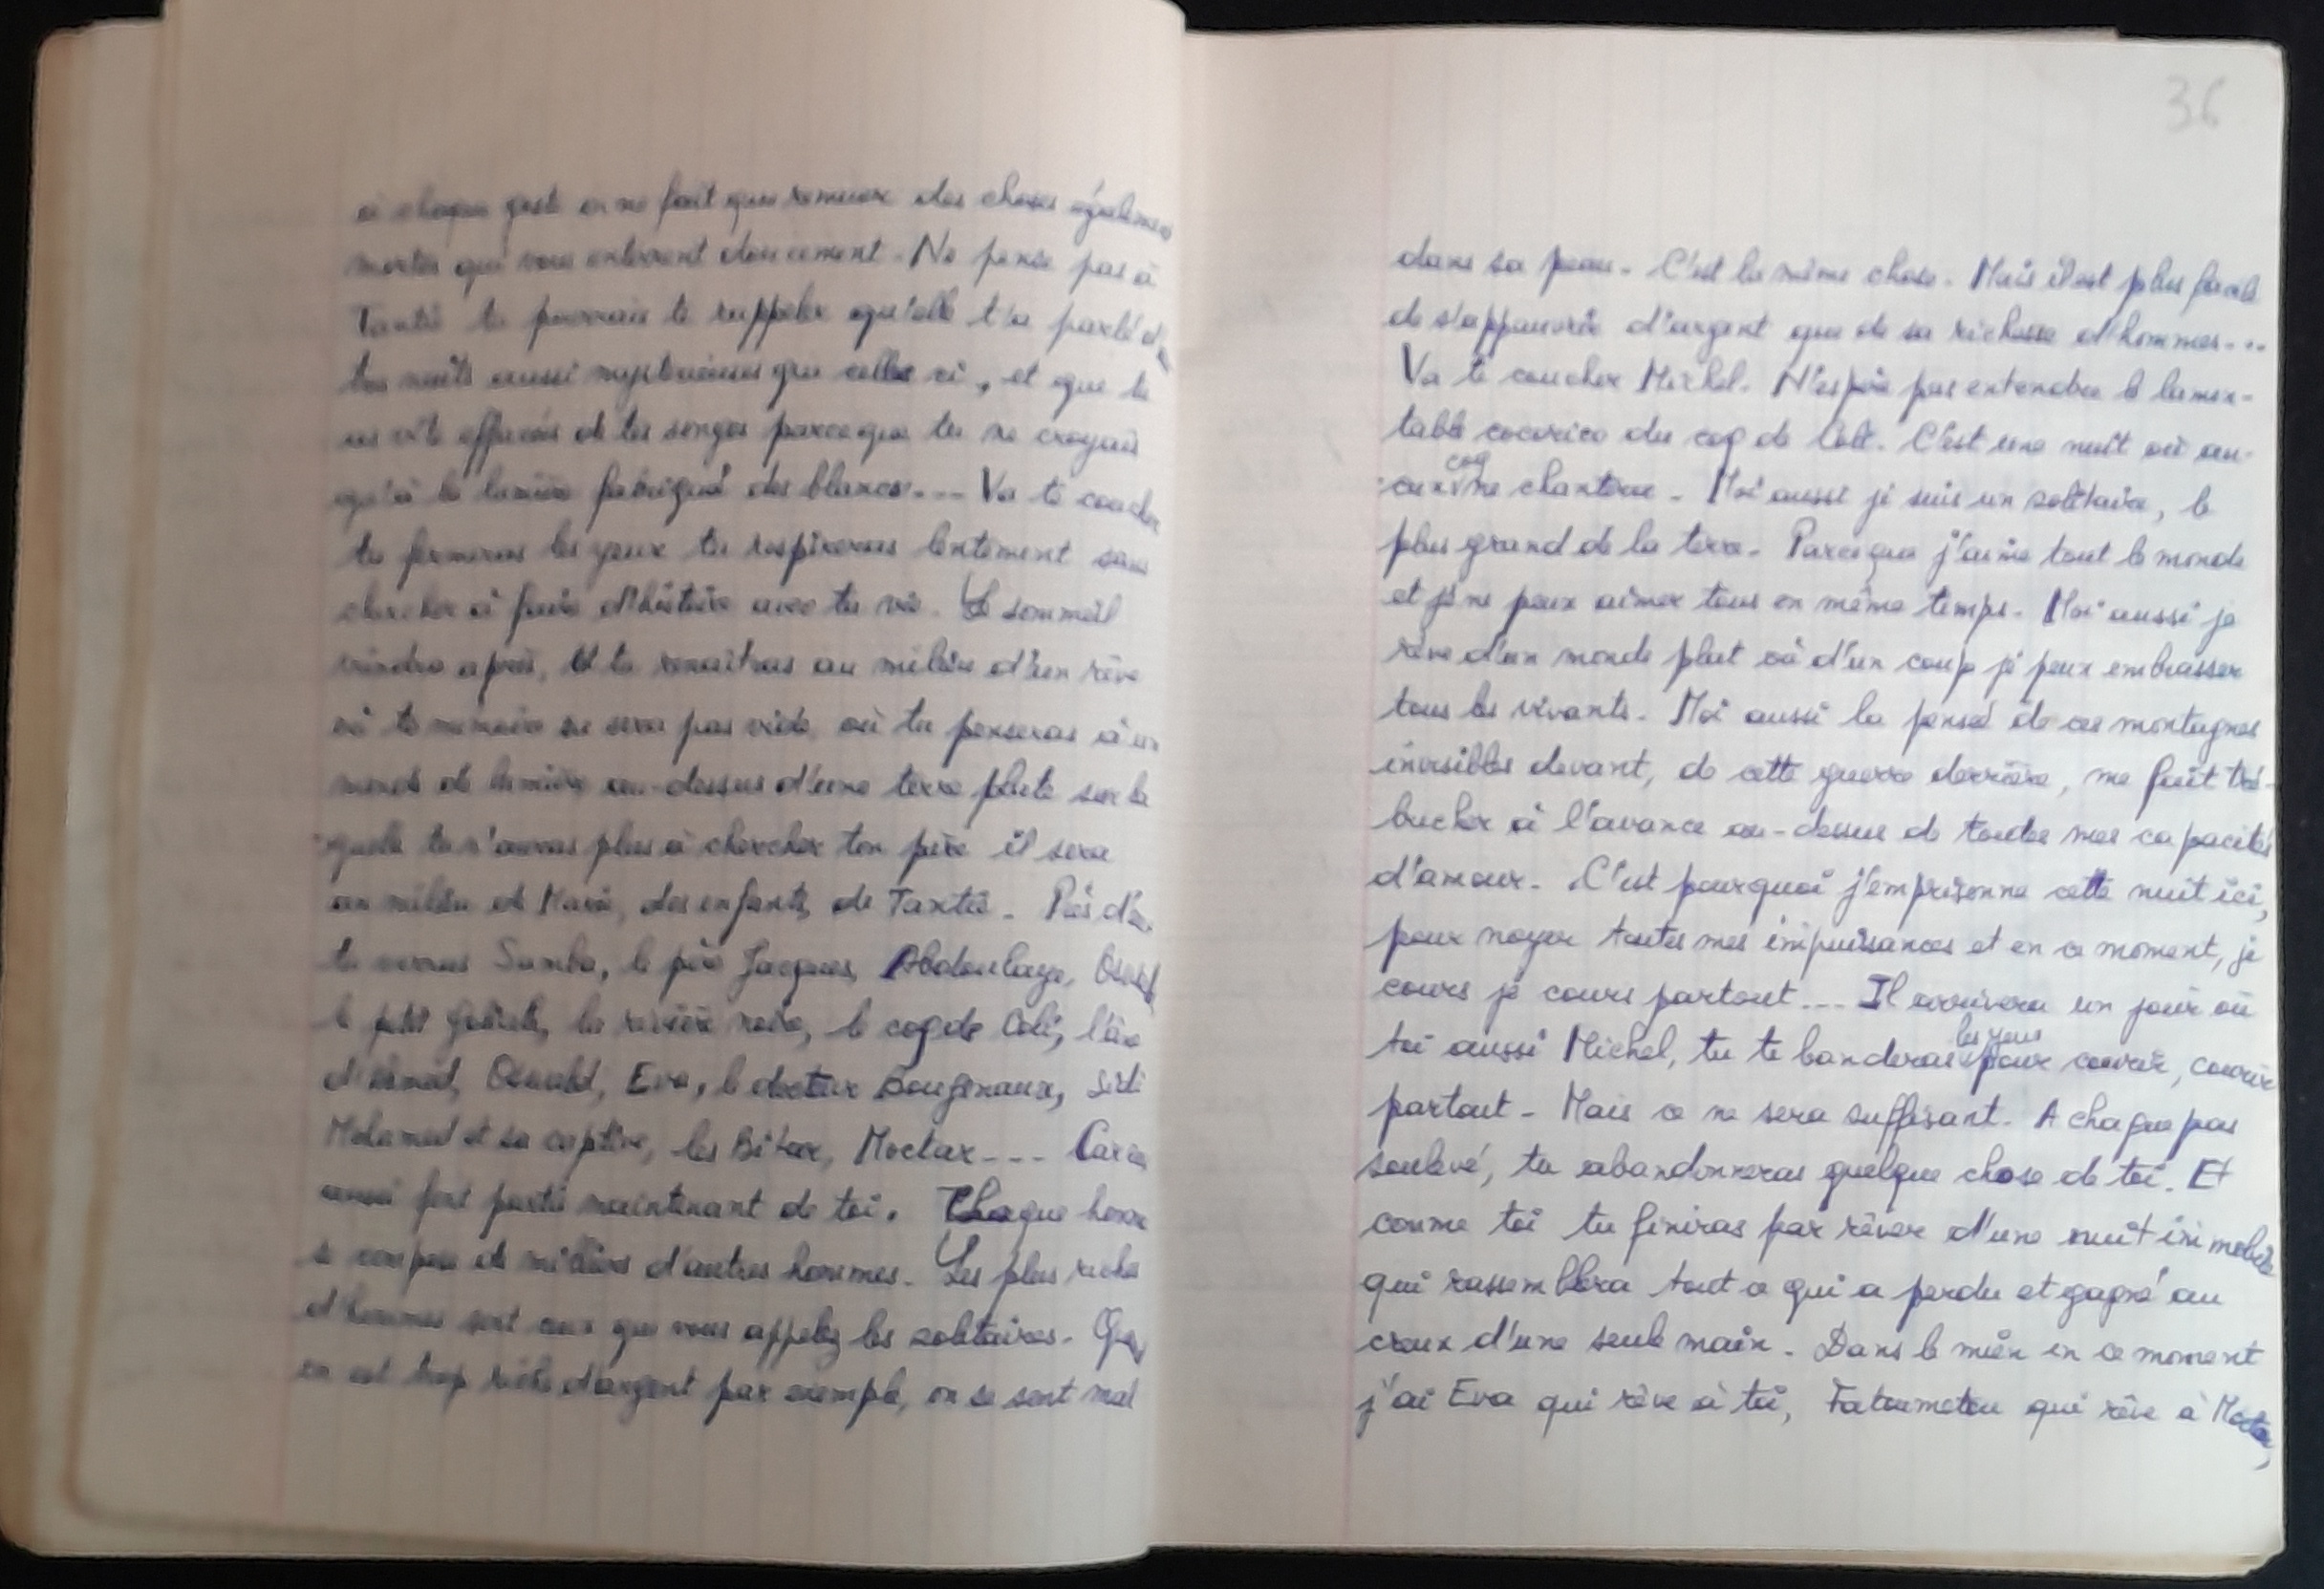 à chaque geste on ne fait que remuer des choses également
mortes qui vous enterrent doucement. Ne pense pas à
Tantie tu pourrais te rappeler qu'elle t'a parlé de
tes nuits aussi mystérieuses que celle ci, et que tu
as vite effacées de tes songes parceque tu ne croyais
qu'à la lumière fabriqué des blancs... Va te coucher
tu fermeras les yeux tu respireras lentement sans
chercher à faire d'histoire avec ta vie. Le sommeil
viendra après, et tu renaîtras au milieu d'un rêve
où ta mémoire ne sera pas vide, où tu penseras à un
monde de lumière au-dessus d'une terre plate sur la
quelle tu n'auras plus à chercher ton père il sera
au milieu de des enfants, de Tantie. Près d'eux
tu verras Samba, le père Jacques, Abdoulaye,
le petit la rivière noire, le coq de Coli, l'âne
Oswald, Eva, le docteur Sidi
Mohamed et sa captive, les Moctar...
aussi font partie maintenant de toi. Chaque homme
se compose de milliers d'autres hommes. Les plus riches
d'hommes sont ceux que vous appelez les solitaires. Quand
on est trop riche d'argent par exemple, on se sent mal
36
dans sa peau. C'est la même chose. Mais il est plus facile
de s'appauvrir d'argent que de sa richesse d'hommes...
Va te coucher Michel. N'espère pas entendre le lamen-
table cocorico du coq de Coli. C'est une nuit où au-
cun coq ne chantera. Moi aussi je suis un solitaire, le
plus grand de la terre. Parceque j'aime tout le monde
et je ne peux aimer tous en même temps. Moi aussi je
rêve d'un monde plat où d'un coup je peux embrasser
tous les vivants. Moi aussi la pensée de ces montagnes
invisibles devant, de cette guerre derrière, me fait tré-
bucher à l'avance au-dessus de toutes mes capacités
d'amour. C'est pourquoi j'emprisonne cette nuit ici,
pour noyer toutes mes impuissances et en ce moment, je
cours je cours partout... Il arrivera un jour où
toi aussi Michel, tu te banderas les yeux pour courir, courir
partout - Mais ce ne sera suffisant. A chaque pas
soulevé, tu abandonneras quelque chose de toi. Et
comme toi tu finiras par rêver d'une nuit immobile
qui rassemblera tout ce qui a perdu et gagné au
creux d'une seule main. Dans le mien en ce moment
j'ai Eva qui rêve à toi, Fatoumatou qui rêve à Moctar,